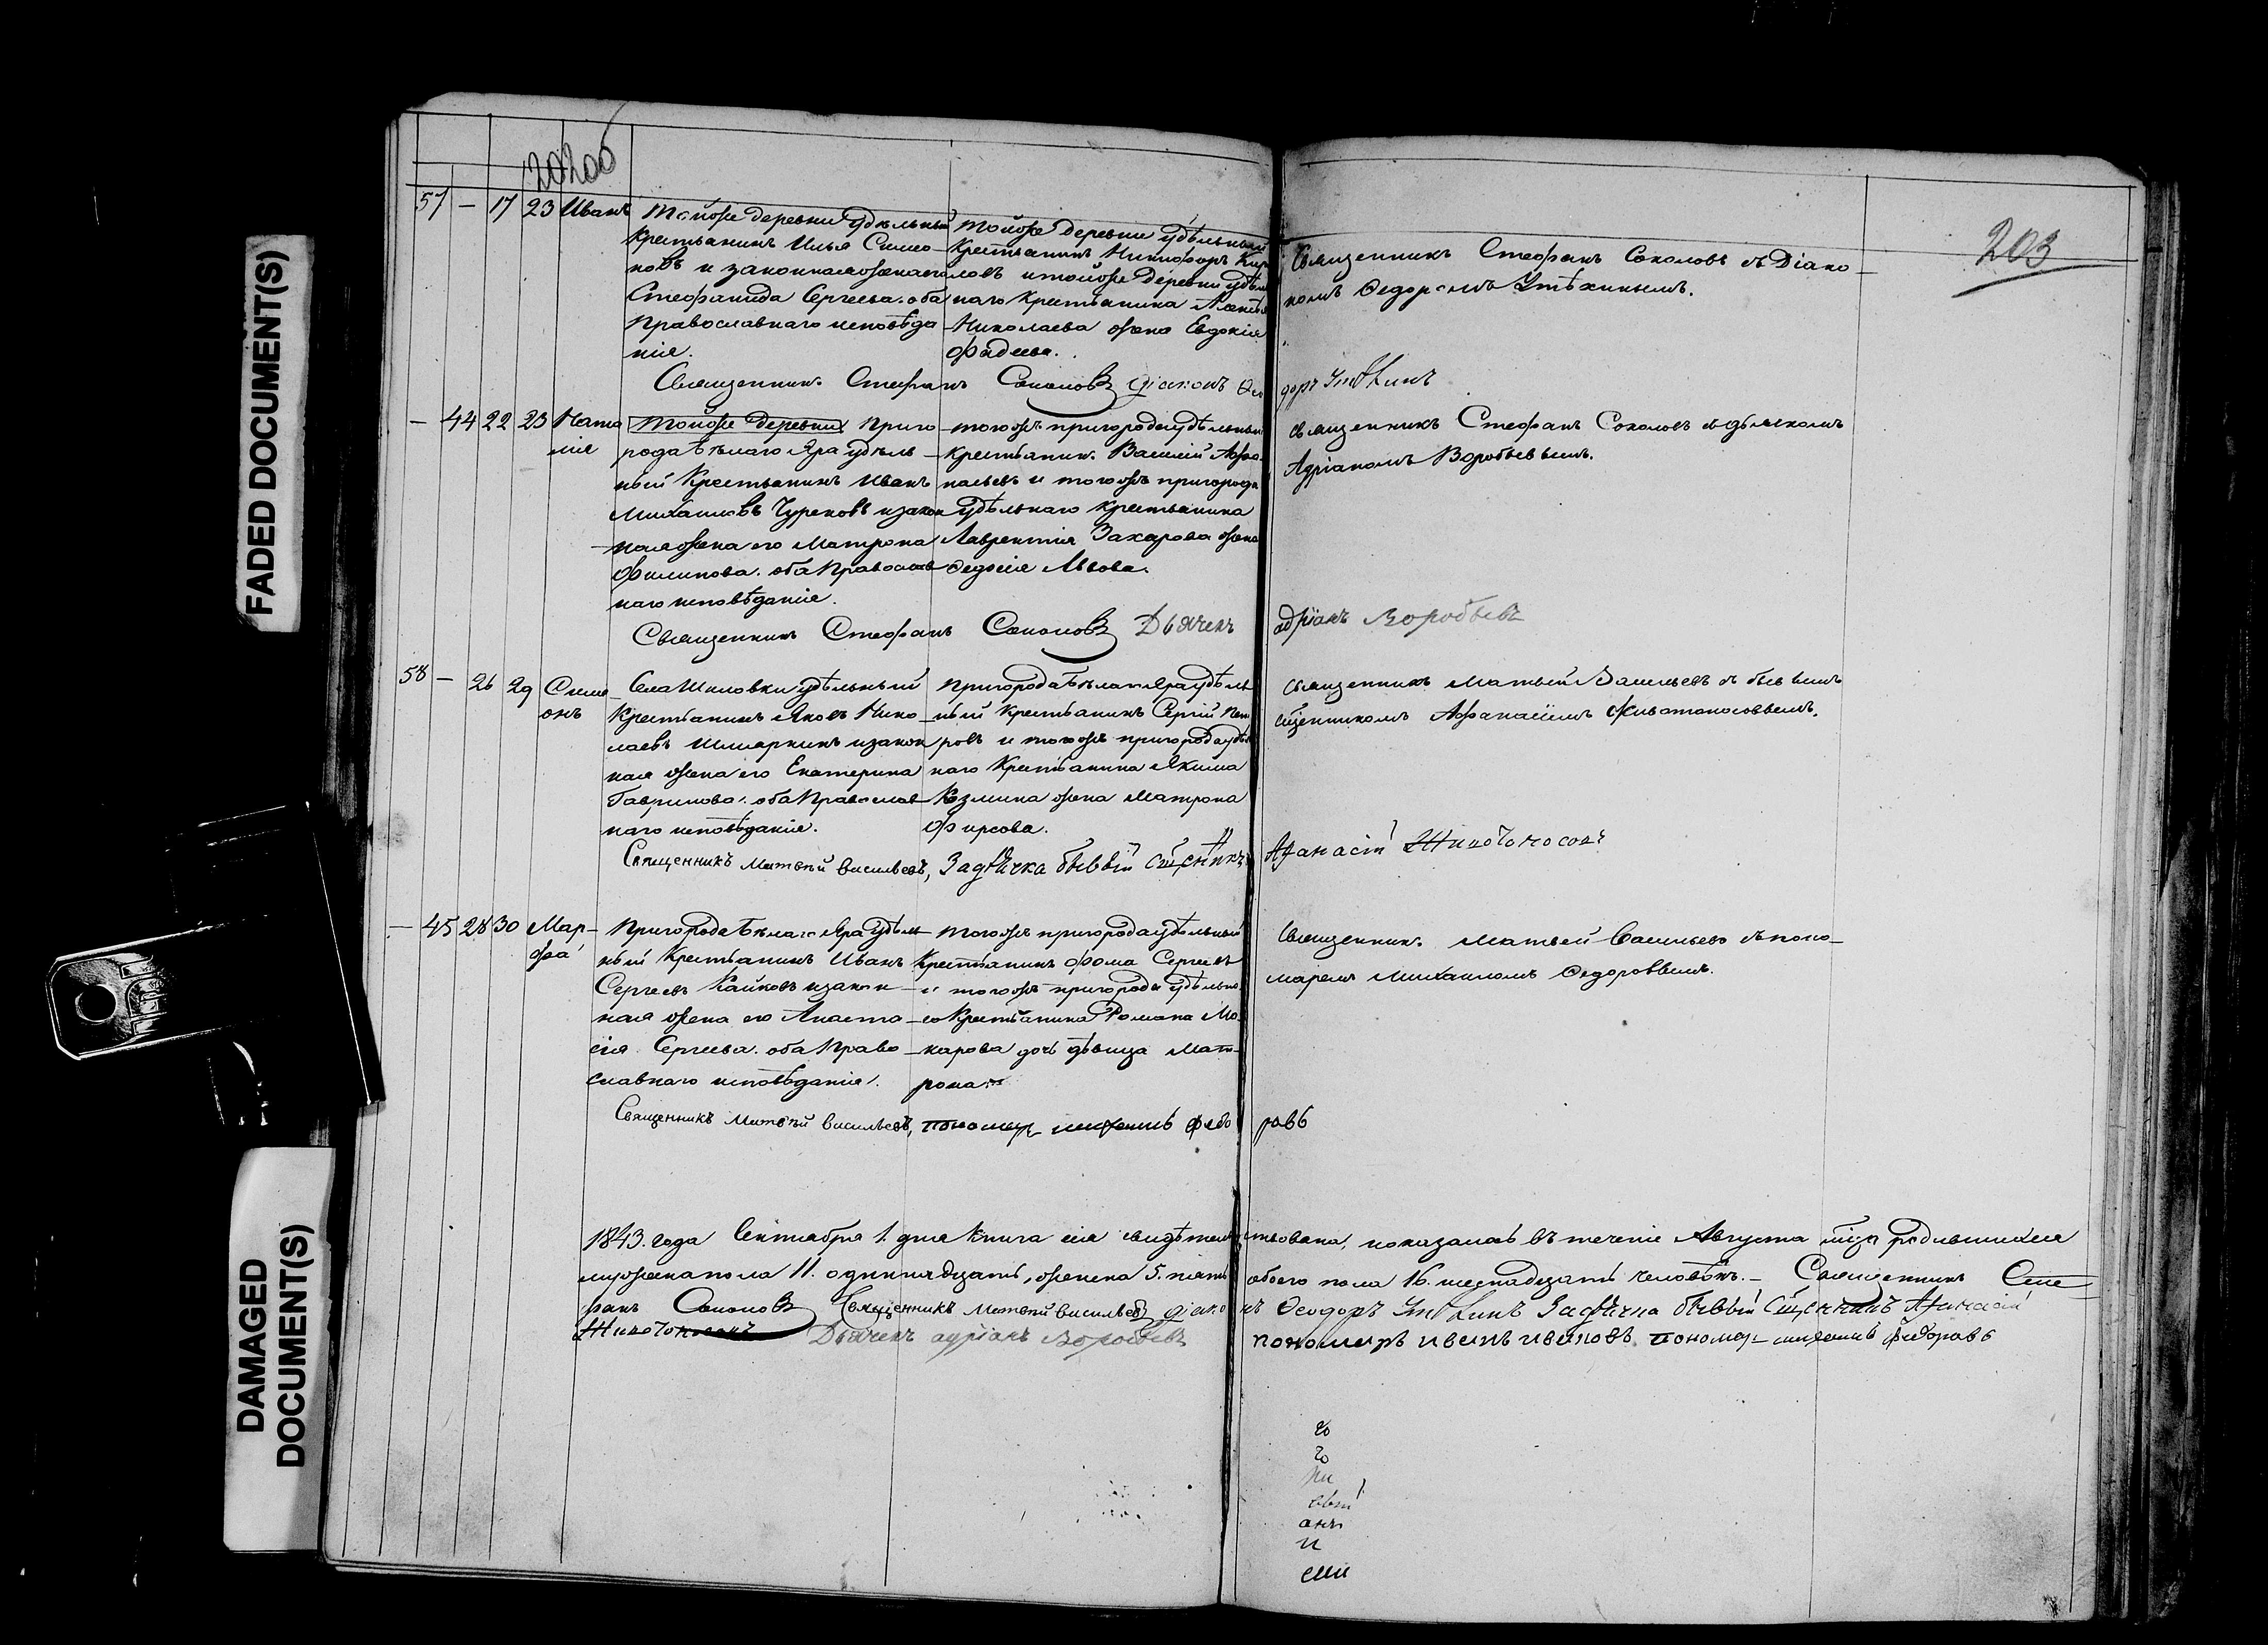 FADED DOCUMENT(S)
DAMAGED
DOCUMENT(S)
203
57 — 17 23 Иванъ
Тойже деревни удѣльный
Крестьянинъ Илья Симо-
новъ и законная жена его
Стефанида Сергѣева. оба
Православнаго исповѣда-
нія.
Тойже деревни удѣльный
Крестьянинъ Никифоръ Кир-
ловъ и тойже деревни удѣль
наго Крестьянина
Николаева жена Евдокія
Фадеева.
Священникъ Стефанъ Соколовъ съ Діако-
номъ Федоромъ Утѣхинымъ.
Священникъ Стефанъ Соколовъ діаконъ Ѳео
доръ Утѣхинъ
— 44 22 23 Ната
лія
Тойже деревни Приго
рода Бѣлаго Яра удѣль-
ной Крестьянинъ Иванъ
Михаиловъ Чуреновъ и закон
ная жена его Матрона
Филипова. оба Православ
наго исповѣданія.
тогожъ пригорода удѣльный
Крестьянин. Василій Афа-
насьевъ и тогожъ пригорода
удѣльнаго крестьянина
Лаврентія Захарова жена
Федосія Львова.
священникъ Стефанъ Соколовъ съ дьячкомъ
Адріаномъ Воробьевымъ.
Священникъ Стефанъ Соколовъ Дьячекъ
адріанъ Воробьевъ
58 — 26 29 Симе
онъ
Села Шиловки удѣльный
Крестьянинъ Яковъ Нико-
лаевъ Шмаркинъ и закон
ная жена его Екатерина
Гаврилова. оба Православ
наго исповѣданія.
Пригорода Бѣлаго Яра удѣль
ный Крестьянинъ Сергій Пет
ровъ и тогожъ пригорода удѣль
наго Крестьянина Якима
Козмина жена Матрона
Фирсова.
священникъ Матвей Васильевъ съ бывшимъ
сщенникомъ Афанасіемъ Животоносовымъ.
Священникъ Матвѣй Васильевъ, За дьячка бывшій сщенникъ
Афанасій Животоносовъ
— 45 28 30 Мар-
фа
Пригорода Бѣлаго Яра удѣль
ный Крестьянинъ Иванъ
Сергеевъ Кайковъ и закон-
ная жена его Анаста-
сія Сергѣева. оба Право-
славнаго исповѣданія.
тогожъ пригорода удѣльный
Крестьянинъ Фома Сергеевъ
и тогожъ пригорода удѣльна
го Крестьянина Романа Мо-
карова дочь дѣвица Мат-
рона.
Священник. Матвей Васильевъ съ поно-
маремъ Михаиломъ Федоровымъ.
Священникъ Матвѣй Васильевъ, пономарь михаилъ федо
ровъ
1843. года Сентября 1. дня Книга сія свидѣтельствована, показалось въ теченіе Августа мца родившихся
мужеска пола 11. одиннадцать, женска 5. пять обоего пола 16. шеснадцать человѣкъ.— Священникъ Сте-
фанъ Соколовъ Священникъ Матвѣй Васильевъ діаконъ Ѳеодоръ Утѣхинъ За дьячка бывшій сщенникъ Афанасій
Животоносовъ Дьячекъ адріанъ Воробьевъ пономарь иванъ ивановъ. пономарь михаилъ федоровъ